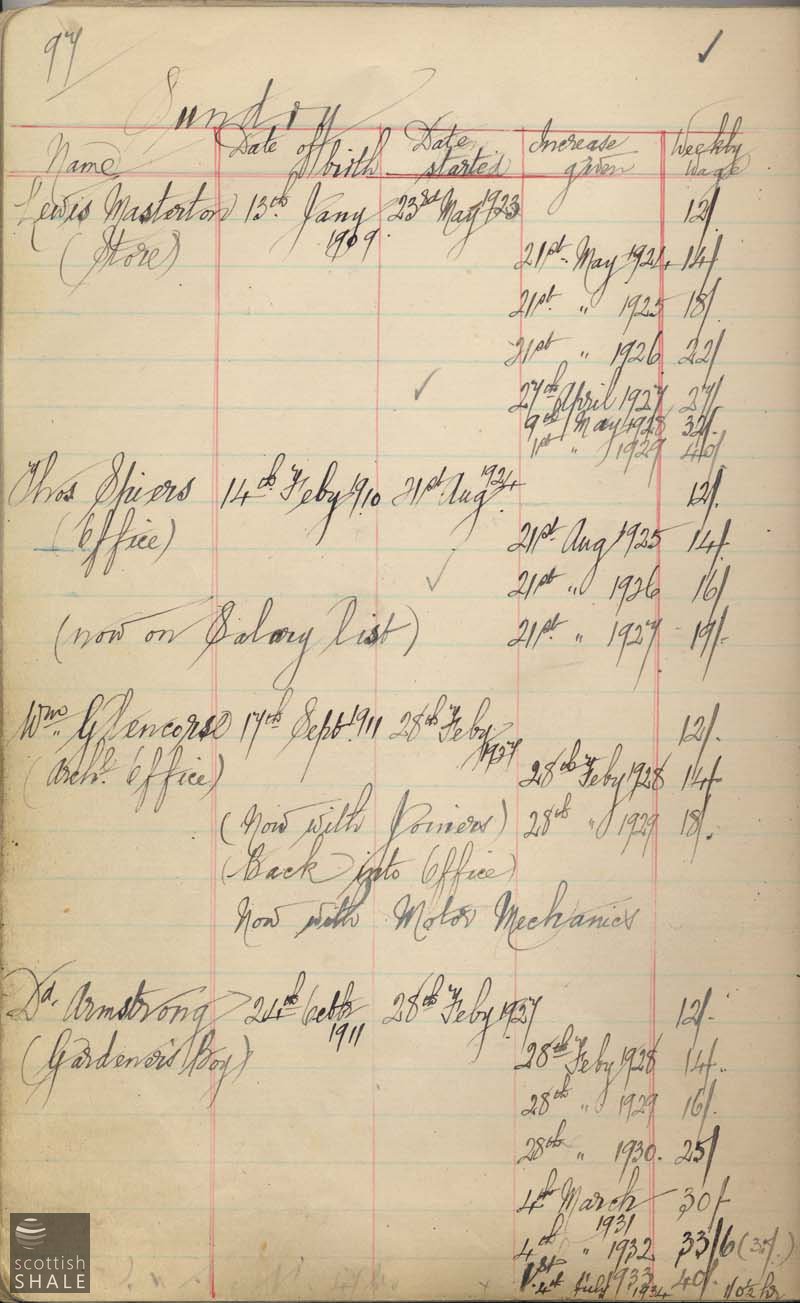 97
Sundry
Name Date of birth Date started Increase given Weekly wage
Lewis Masterton 13th Jany 1909. 23rd May 1923 12/
(Store) 21st May 1924 14/
21st " 1925 18/
21st " 1926 22/
27th April 1927 27/
9th May 1928 32/-
1st " 1929 40/
Thos Spiers 14th Feby 1910 21st Aug 1924 12/.
(Office) 21st Aug 1925 14/.
21st " 1926 16/
(now on Salary list) 21st " 1927 19/-
Wm. Glencorse 17th Sept. 1911 28th Feby 1927 12/.
(Archt. Office) 28th Feby 1928 14/-
(Now with Joiners) 28th " 1929 18/.
(Back into Office)
Now with Motor Mechanics
Dd. Armstrong 24th Octbr 1911 28th Feby 1927 12/-
(Gardener's Boy) 28th Feby 1928 14/-.
28th " 1929 16/.
28th " 1930. 25/
4th March 1931 30/-
4th " 1932 33/6 (35/.)
1st 1933 40/.
4th July 1934 1/0½ hr
scottish
SHALE